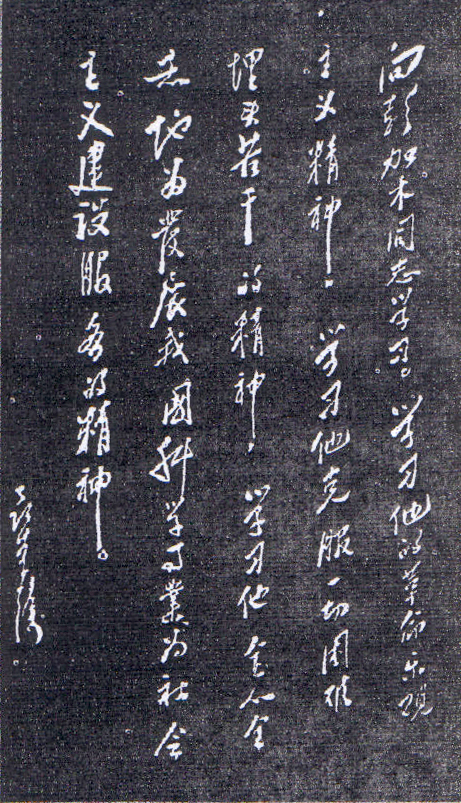 向彭加木同志学习。学习他的革命乐观
主义精神。学习他克服一切困难
埋头苦干的精神，学习他全心全
意地为發展我國科学事業为社会
主义建设服务的精神。